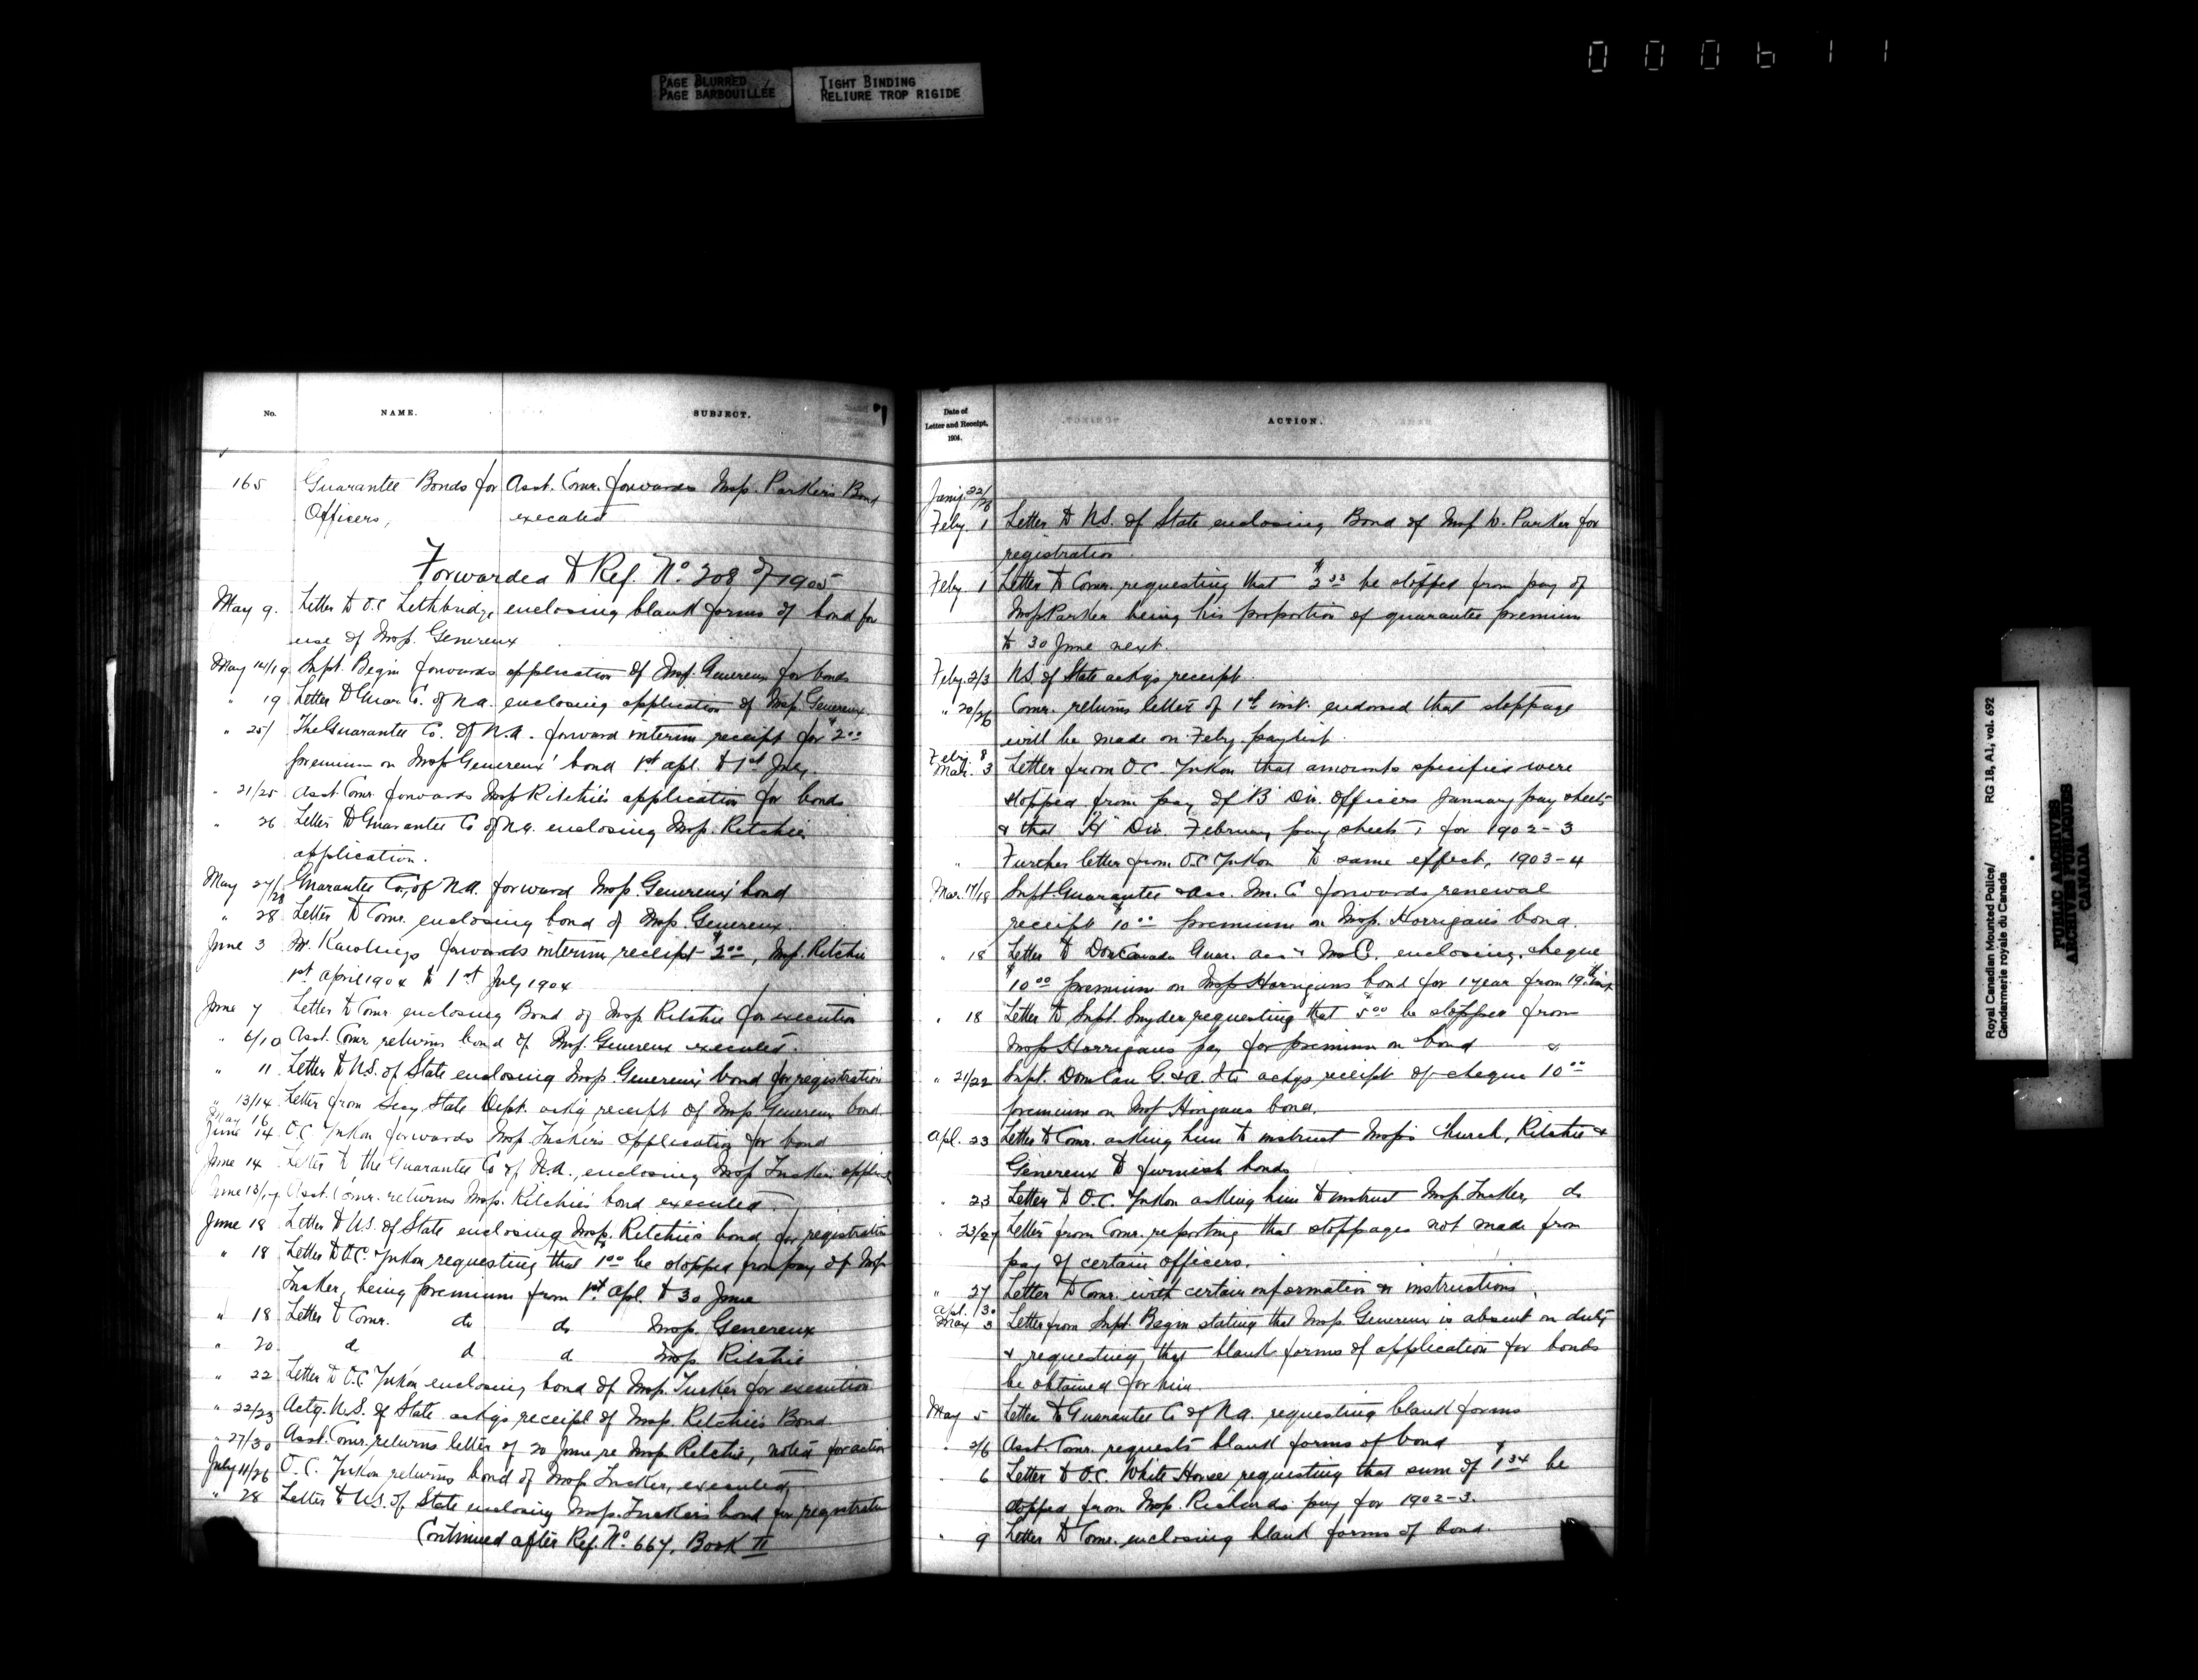 000611
PAGE BLURRED
PAGE BARBOUILLÉE
TIGHT BINDING
RELIURE TROP RIGIDE
No. NAME. SUBJECT.
165 Guarantee Bonds for Asst. Comr. forwards Insp. Parker's Bond
Officers, executed
Forwarded to Ref. No. 308 of 1905
May 9. Letter to O.C. Lethbridge, enclosing blank forms of bond for
use of Insp. Genereux
May 14/19 Supt. Begin forwards application of Insp. Genereux for bonds
" 19 Letter to Guar. Co. of N.A. enclosing application of Insp. Genereux.
" 25/ The Guarantee Co. of N.A. forward interim receipt for $2.00
premium on Insp Genereux' bond 1st apl. to 1st July
" 21/25 Asst Comr. forwards Insp Ritchie's application for bonds
" 26 Letter to Guarantee Co of N.A. enclosing Insp. Ritchie
application.
May 27/28 Guarantee Co. of N.A. forward Insp. Genereux' bond
" 28 Letter to Comr. enclosing bond of Insp. Genereux.
June 3 Mr. Rawlings forwards interim receipt $2.00, Insp. Ritchie
1st April 1904 to 1st July 1904
June 7 Letter to Comr enclosing Bond of Insp Ritchie for execution
" 6/10 Asst. Comr returns bond of Insp. Genereux executed.
" 11 Letter to U.S. of State enclosing Insp. Genereux' bond for registration
" 13/14 Letter from Secy. State Dept. ackg receipt of Insp. Genereux bond.
May 16
June 14 O.C. Yukon forwards Insp. Tucker's application for bond
June 14 Letter to the Guarantee Co of N.A., enclosing Insp Tucker
June 13/17 Asst. Comr. returns Insp. Ritchie's bond executed.
June 18 Letter to U.S. of State enclosing Insp. Ritchie's bond for registration
" 18 Letter to O.C. Yukon requesting that $1.00 be stopped from pay of Insp
Tucker, being premium from 1st Apl. to 30 June
" 18 Letter to Comr. do do Insp. Genereux
" 20 d d d Insp. Ritchie
" 22 Letter to O.C. Yukon enclosing bond of Insp. Tucker for execution
" 22/23 Actg. U.S. of State ackgs receipt of Insp. Ritchie's Bond
" 27/30 Asst. Comr. returns letter of 20 June re Insp Ritchie, noted for action
July 11/26 O.C. Yukon returns bond of Insp Tucker, executed,
" 28 Letter to U.S. of State enclosing Insp. Tucker's bond for registration
Continued after Ref. No. 667, Book II
Date of
Letter and Receipt,
1904.
ACTION.
Jany. 22/
Feby. 1 Letter to U.S. of State enclosing Bond of Insp W. Parker for
registration.
Feby. 1 Letter to Comr. requesting that $2.33 be stopped from pay of
Insp Parker being his proportion of guarantee premium
to 30 June next.
Feby. 2/3 U.S. of State ackgs receipt.
" 20/26 Comr. returns letter of 1st inst. endorsed that stoppage
will be made on Feby. paylist.
Feby. 8
Mar. 3 Letter from O.C. Yukon that amounts specified were
stopped from pay of "B" Div. officers January pay sheets
& that "H" Div. February pay sheets, for 1902-3
" Further letter from O.C. Yukon to same effect, 1903-4
Mar. 17/18 Supt. Guarantee & Acc. In. C forwards renewal
receipt $10.00 premium on Insp. Horrigan's bond.
" 18 Letter to Dom Canada Guar. Acc. Ins C. enclosing cheque
$10.00 premium on Insp Horrigans bond for 1 year from 19th inst
" 18 Letter to Supt. Snyder requesting that $5.00 be stopped from
Insp Horrigans pay for premium on bond
" 21/22 Supt. Dom Can G. & A. Ito ackgs receipt of cheque 10.00
premium on Insp Horrigans bond.
Apl. 23 Letter to Comr. asking him to instruct Insps Church, Ritchie &
Genereux to furnish bonds
" 23 Letter to O.C. Yukon asking him to instruct Insp. Tucker, do
" 23/27 Letter from Comr. reporting that stoppages not made from
pay of certain officers.
" 27 Letter to Comr. with certain information & instructions.
Apl. 30
May 3 Letter from Supt. Begin stating that Insp. Genereux is absent on duty
& requesting that blank forms of application for bonds
be obtained for him.
May 5 Letter to Guarantee Co of N.A. requesting blank forms
" 2/6 Asst. Comr. requests blank forms of bond
" 6 Letter to O.C. White Horse requesting that sum of $1.34 be
stopped from Insp. Richards pay for 1902-3.
" 9 Letter to Comr. enclosing blank forms of bond.
Royal Canadian Mounted Police/ RG 18, A1, vol. 692
Gendarmerie royale du Canada
PUBLIC ARCHIVES
ARCHIVES PUBLIQUES
CANADA